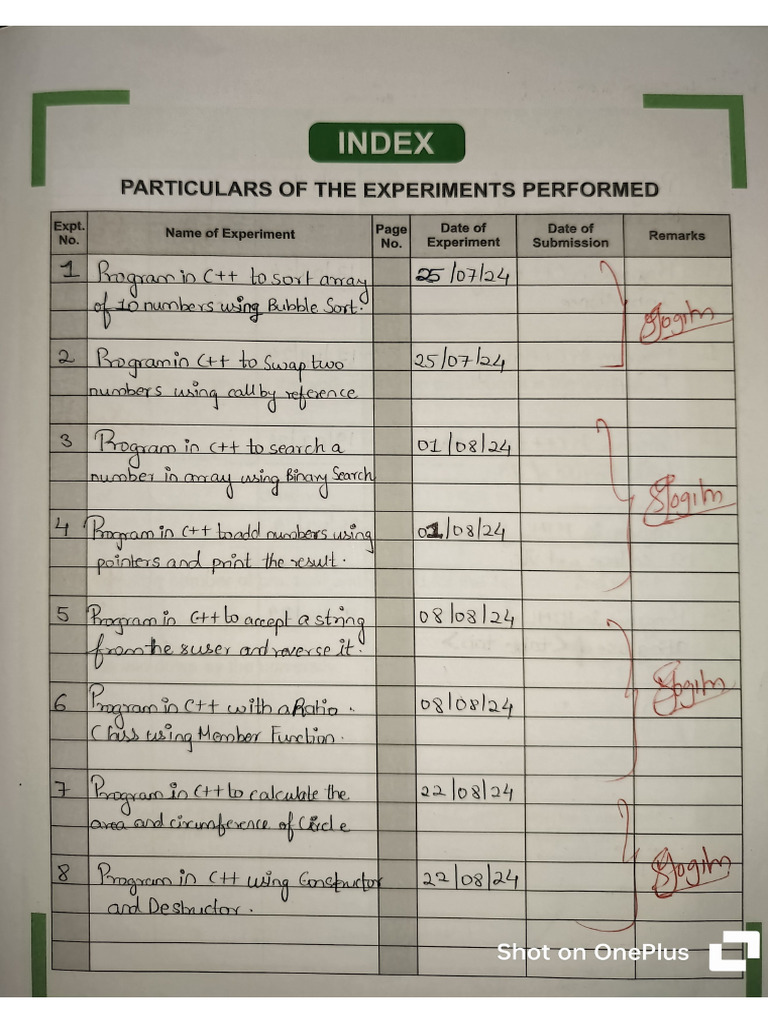 INDEX
PARTICULARS OF THE EXPERIMENTS PERFORMED
Expt. No. Name of Experiment Page No. Date of Experiment Date of Submission Remarks
1 Program in C++ to sort array 25/07/24
of 10 numbers using Bubble Sort.
2 Program in C++ to Swap two 25/07/24
numbers using call by reference
3 Program in C++ to search a 01/08/24
number in array using Binary Search
4 Program in C++ to add numbers using 01/08/24
pointers and print the result.
5 Program in C++ to accept a string 08/08/24
from the suser and reverse it.
6 Program in C++ with a Ratio . 08/08/24
Class using Member Function.
7 Program in C++ to calculate the 22/08/24
area and circumference of Circle
8 Program in C++ using Constructor 22/08/24
and Destructor.
Shot on OnePlus